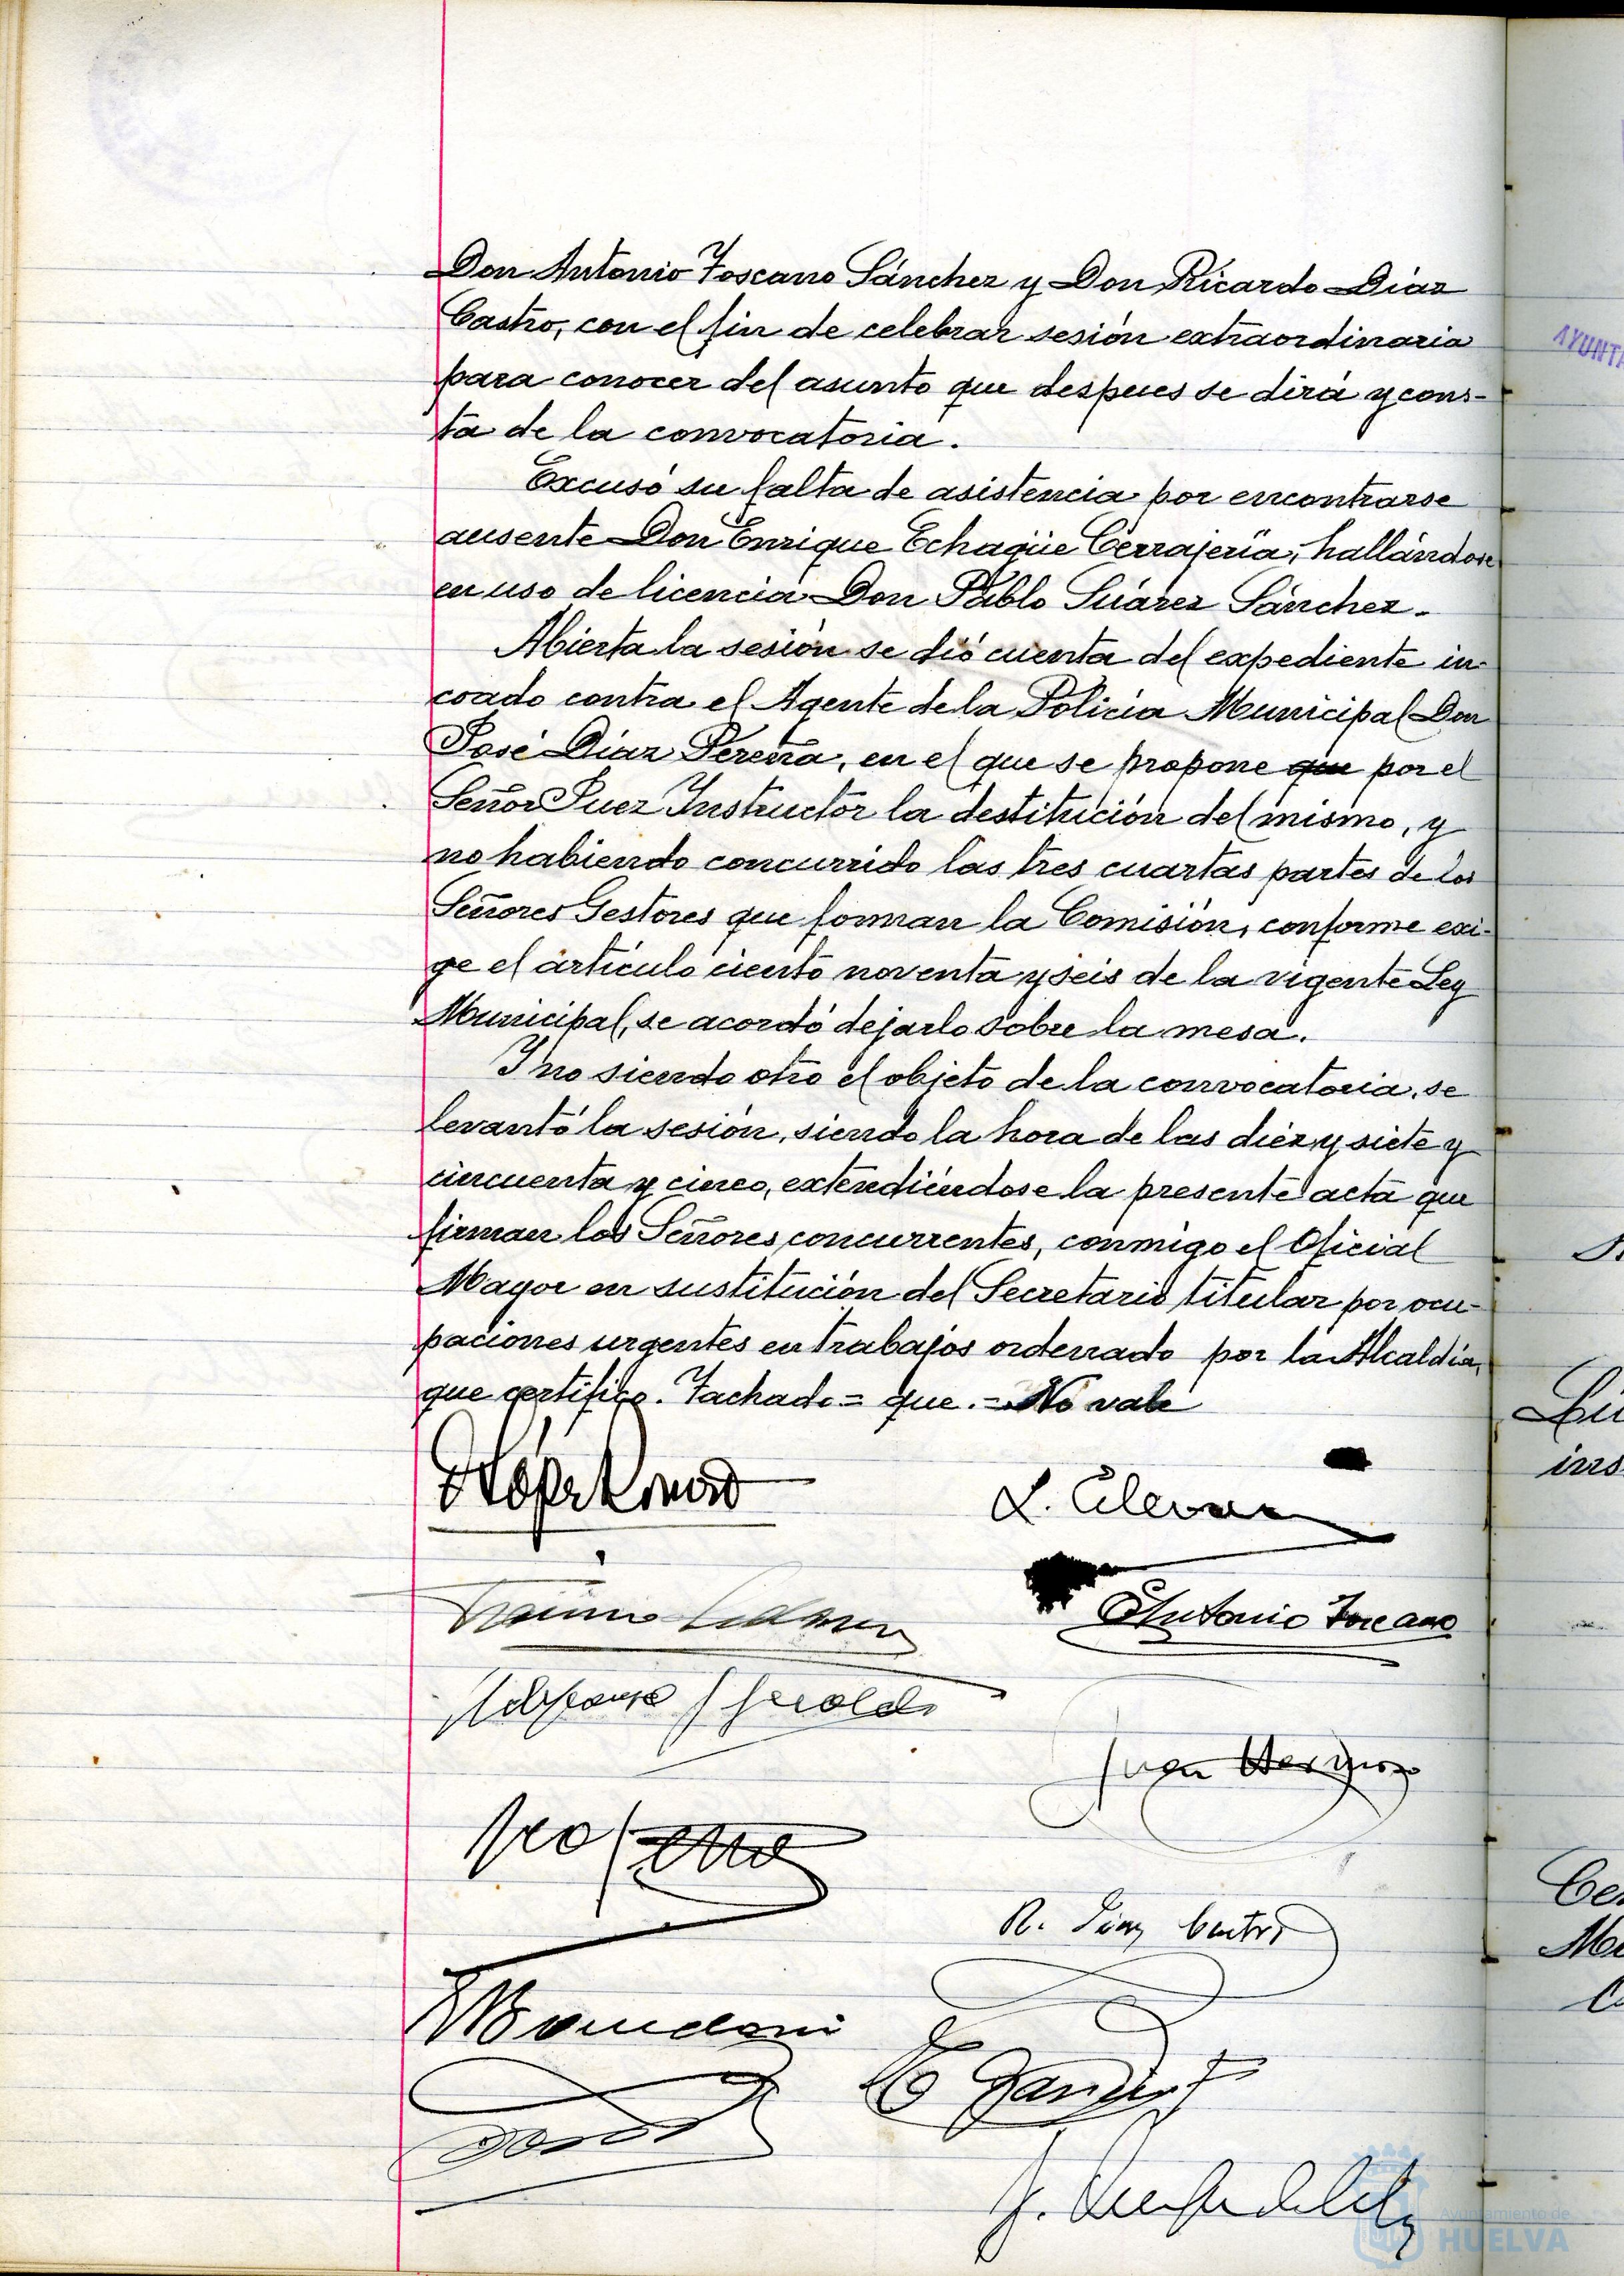 Don Antonio Toscano Sánchez y Don Ricardo Díaz
Castro, con el fin de celebrar sesión extraordinaria
para conocer del asunto que despues se dirá y cons-
ta de la convocatoria.
Excusó su falta de asistencia por encontrarse
ausente Don Enrique Echagüe Cerrajería, hallándose
en uso de licencia Don Pablo Suárez Sánchez.
Abierta la sesión se dió cuenta del expediente in-
coado contra el Agente de la Policía Municipal Don
José Díaz Pereña, en el que se propone que por el
Señor Juez Instructor la destitución del mismo, y
no habiendo concurrido las tres cuartas partes de los
Señores Gestores que forman la Comisión, conforme exi-
ge el artículo ciento noventa y seis de la vigente Ley
Municipal, se acordó dejarlo sobre la mesa.
Y no siendo otro el objeto de la convocatoria, se
levantó la sesión, siendo la hora de las diez y siete y
cincuenta y cinco, extendiéndose la presente acta que
firman los Señores concurrentes, conmigo el Oficial
Mayor en sustitución del Secretario titular por ocu-
paciones urgentes en trabajos ordenado por la Alcaldía,
que certifico. Tachado = que. = No vale
Antonio Toscano
Juan
R. Díaz Castro
AYUNTA
Ayuntamiento de
HUELVA